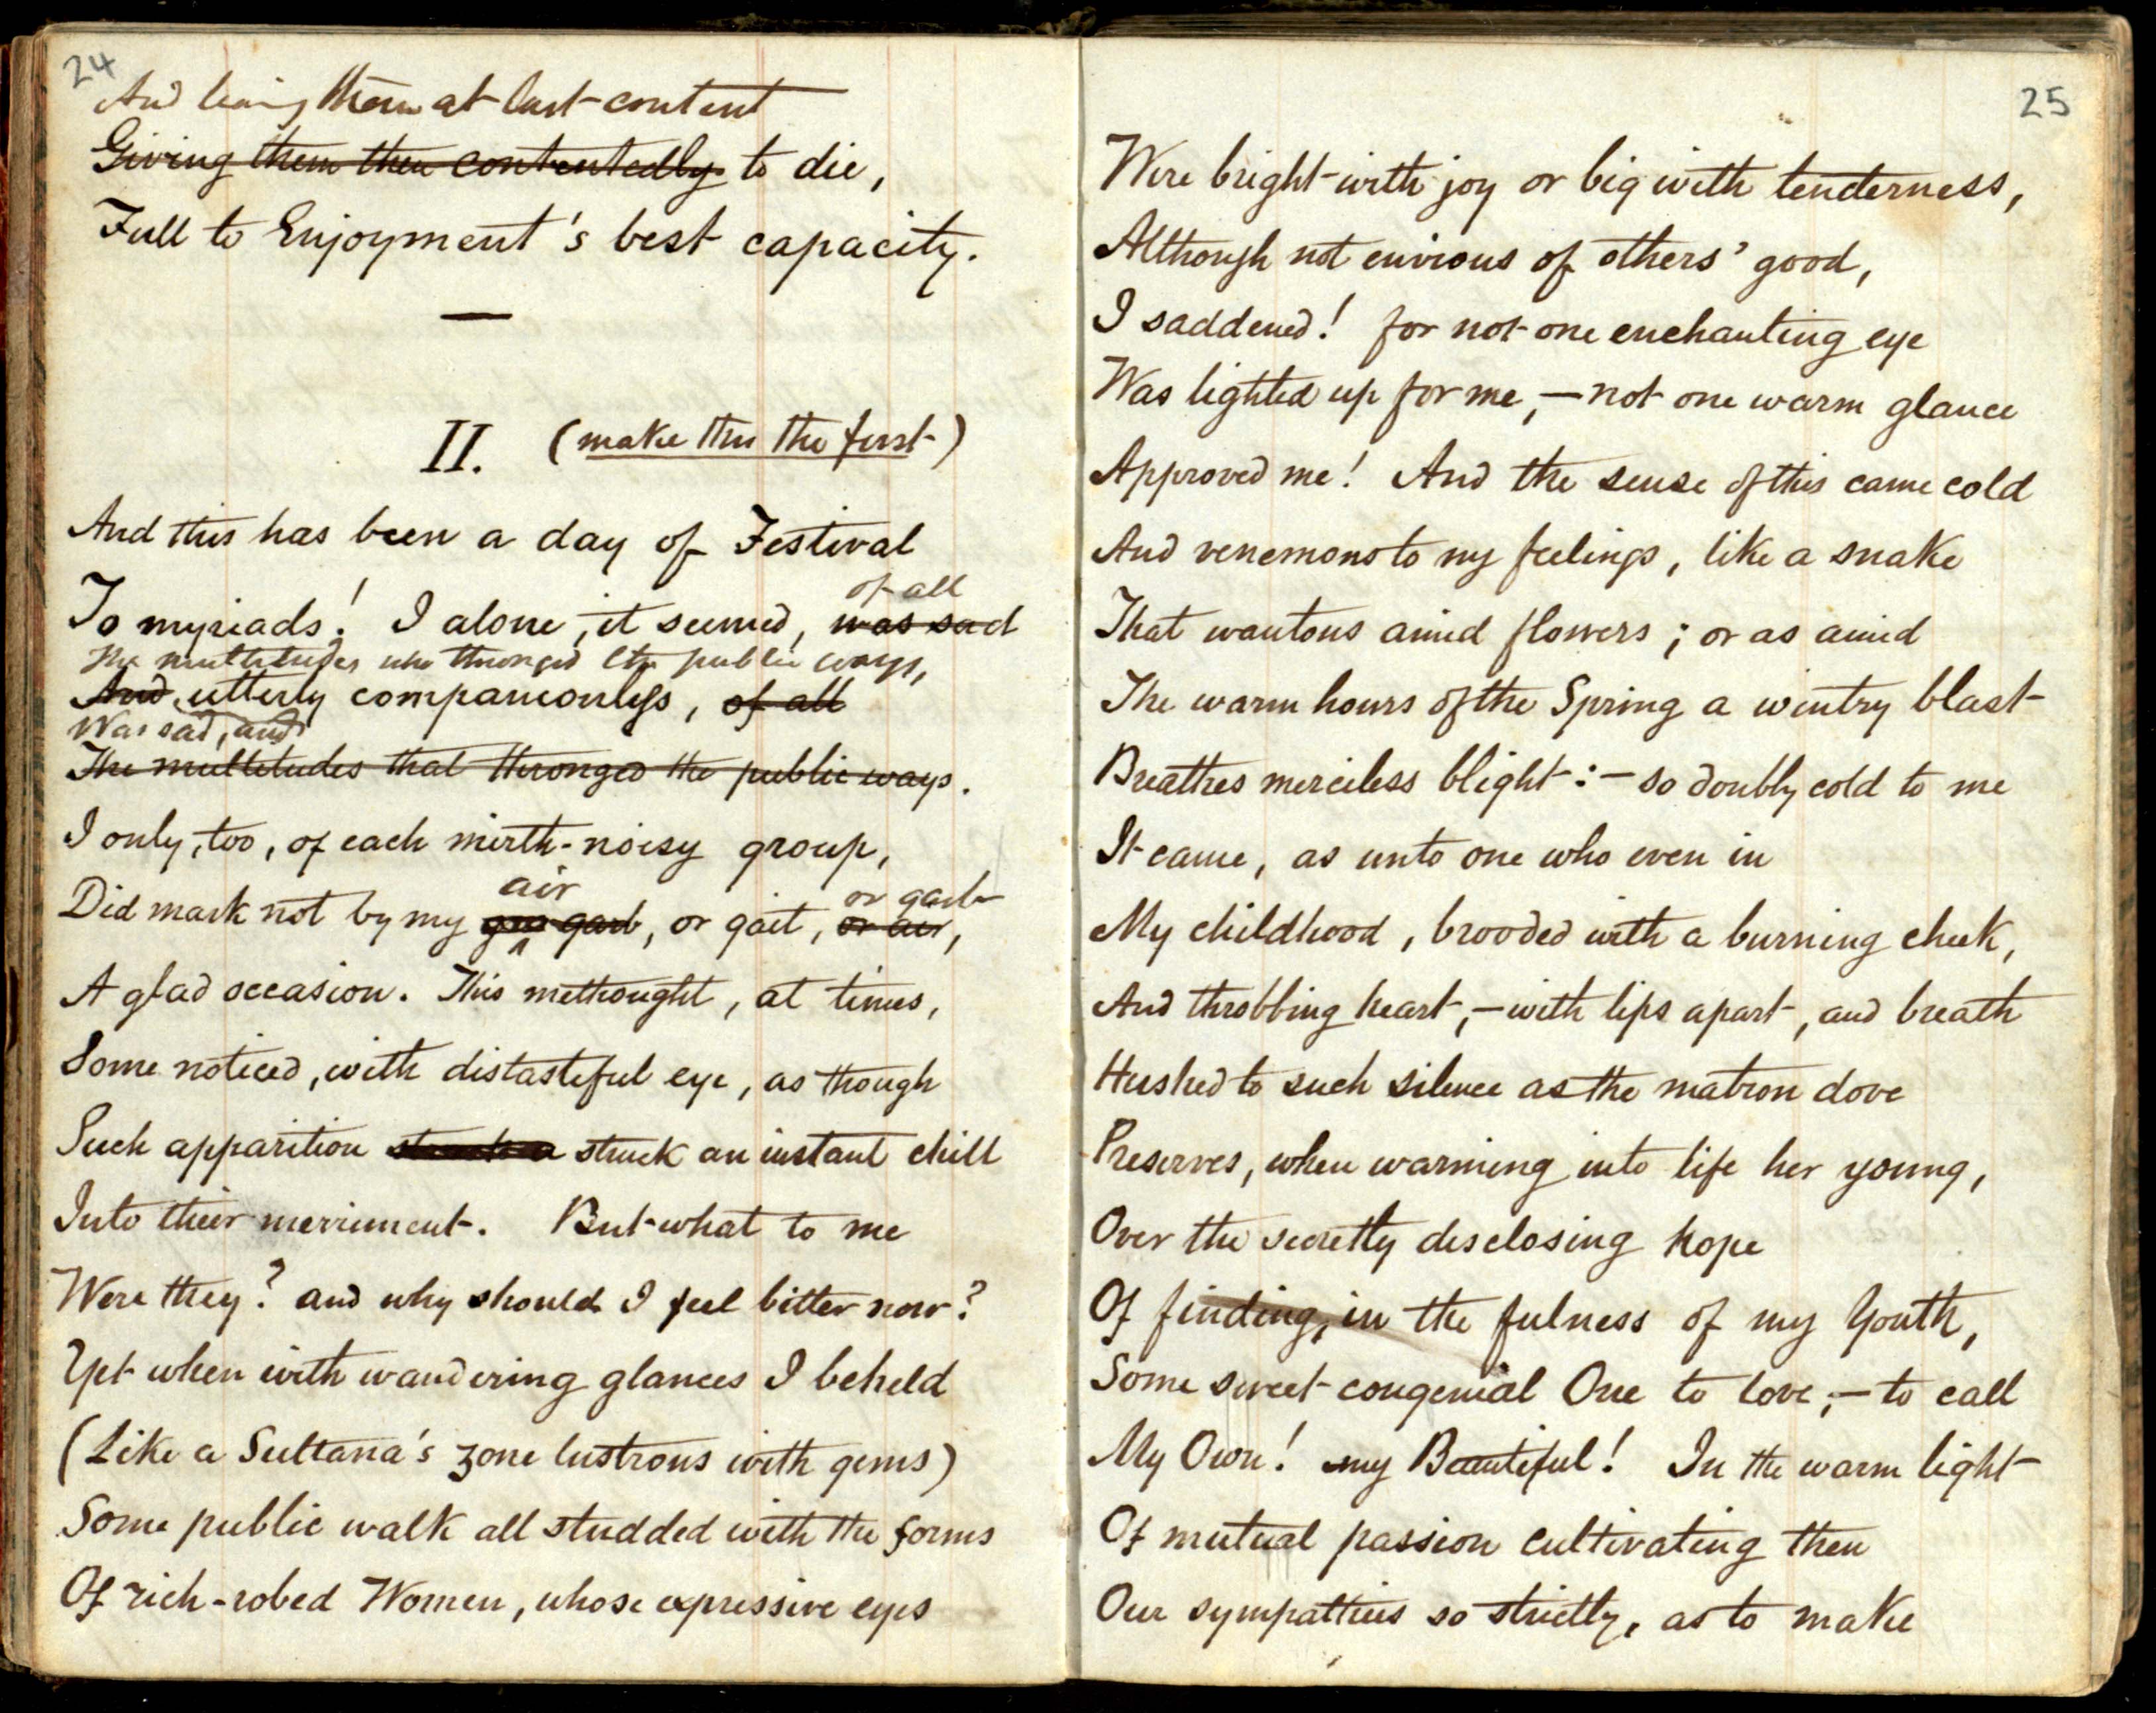 24
And leaving them at last content
Giving them then contentedly to die,
Full to Enjoyment's best capacity.
II. (make this the first)
And this has been a day of Festival
of all
To myriads! I alone, it seemed, was sad
The multitudes who thronged the public ways,
And utterly companionless, of all
Was sad, and
The multitudes that thronged the public ways.
I only, too, of each mirth-noisy group,
air or garb
Did mark not by my garb, or gait, or air,
A glad occasion. This methought, at times,
Some noticed, with distasteful eye, as though
Such apparition struck an instant chill
Into their merriment. But what to me
Were they? and why should I feel bitter now?
Yet when with wandering glances I beheld
(Like a Sultana's zone lustrous with gems)
Some public walk all studded with the forms
Of rich-robed Women, whose expressive eyes
25
Were bright with joy or big with tenderness,
Although not envious of others' good,
I saddened! for not one enchanting eye
Was lighted up for me,—not one warm glance
Approved me! And the sense of this came cold
And venemous to my feelings, like a snake
That wantons amid flowers; or as amid
The warm hours of the Spring a wintry blast
Breathes merciless blight:—so doubly cold to me
It came, as unto one who even in
My childhood, brooded with a burning cheek,
And throbbing heart,—with lips apart, and breath
Hushed to such silence as the matron dove
Preserves, when warming into life her young,
Over the secretly disclosing hope
Of finding, in the fulness of my Youth,
Some sweet congenial One to love,—to call
My Own! my Beautiful! In the warm light
Of mutual passion cultivating then
Our sympathies so strictly, as to make